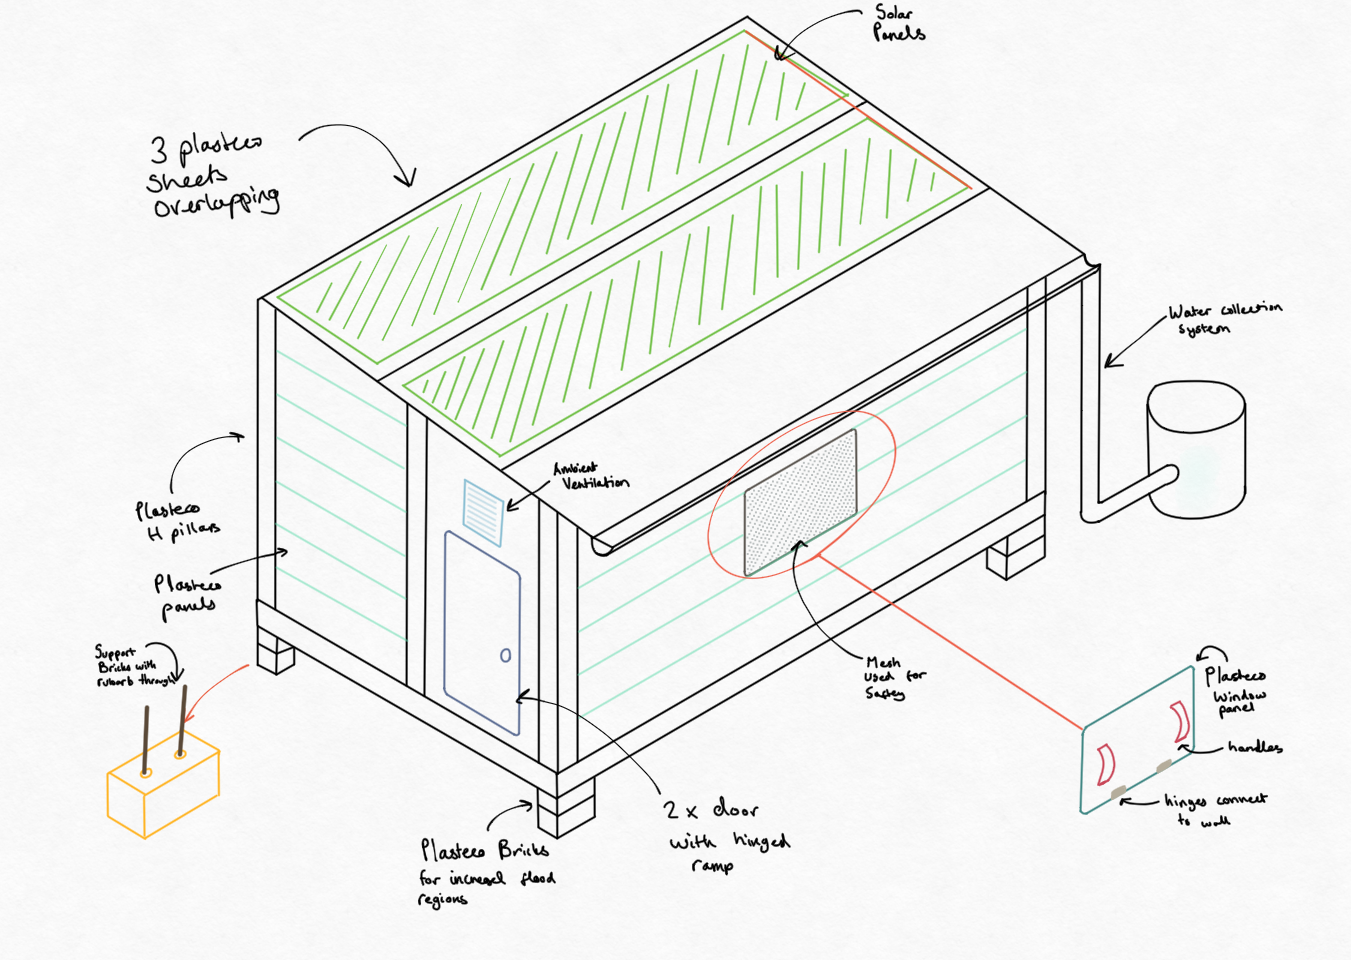 Solar
Panels
3 plasteco
Sheets
Overlapping
Water collection
system
Ambient
Ventilation
Plasteco
H pillars
Plasteco
panels
Support
Bricks with
through
Mesh
used for
Plasteco
window
panel
handles
hinges connect
to wall
2 x door
with hinged
ramp
Plasteco Bricks
for flood
regions